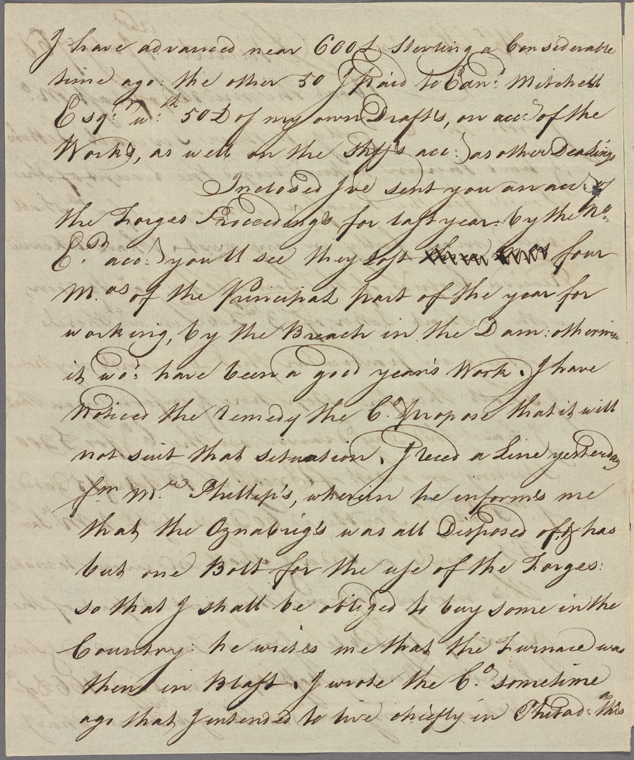 I have advanced near 600£ Sterling a Considerable
time ago: the other 50 I paid to Mitchell
Esqr: wth 50£ of my own Drafts, on acct: of the
Works, as well on the acct: as other Dealings
Inclosed I've sent you an acct of
the Forges Proceedings for last year: by the No.
E. acct: you'll see they lost four
M.os of the Principal part of the year for
working, by the Breach in the Dam: otherwise
it wo.d have been a good year's Work. I have
Noticed the remedy the Co. propose that it will
not suit that situation. I reced a Line yesterday
from Mr. Phillip's, wherein he informs me
that the Oznabrigs was all Disposed of: & has
but one Bolt for the use of the Forges:
so that I shall be obliged to buy some in the
Country: he writes me that the Furnace was
then in Blast. I wrote the Co. sometime
ago that I intended to live chiefly in Philad.a this